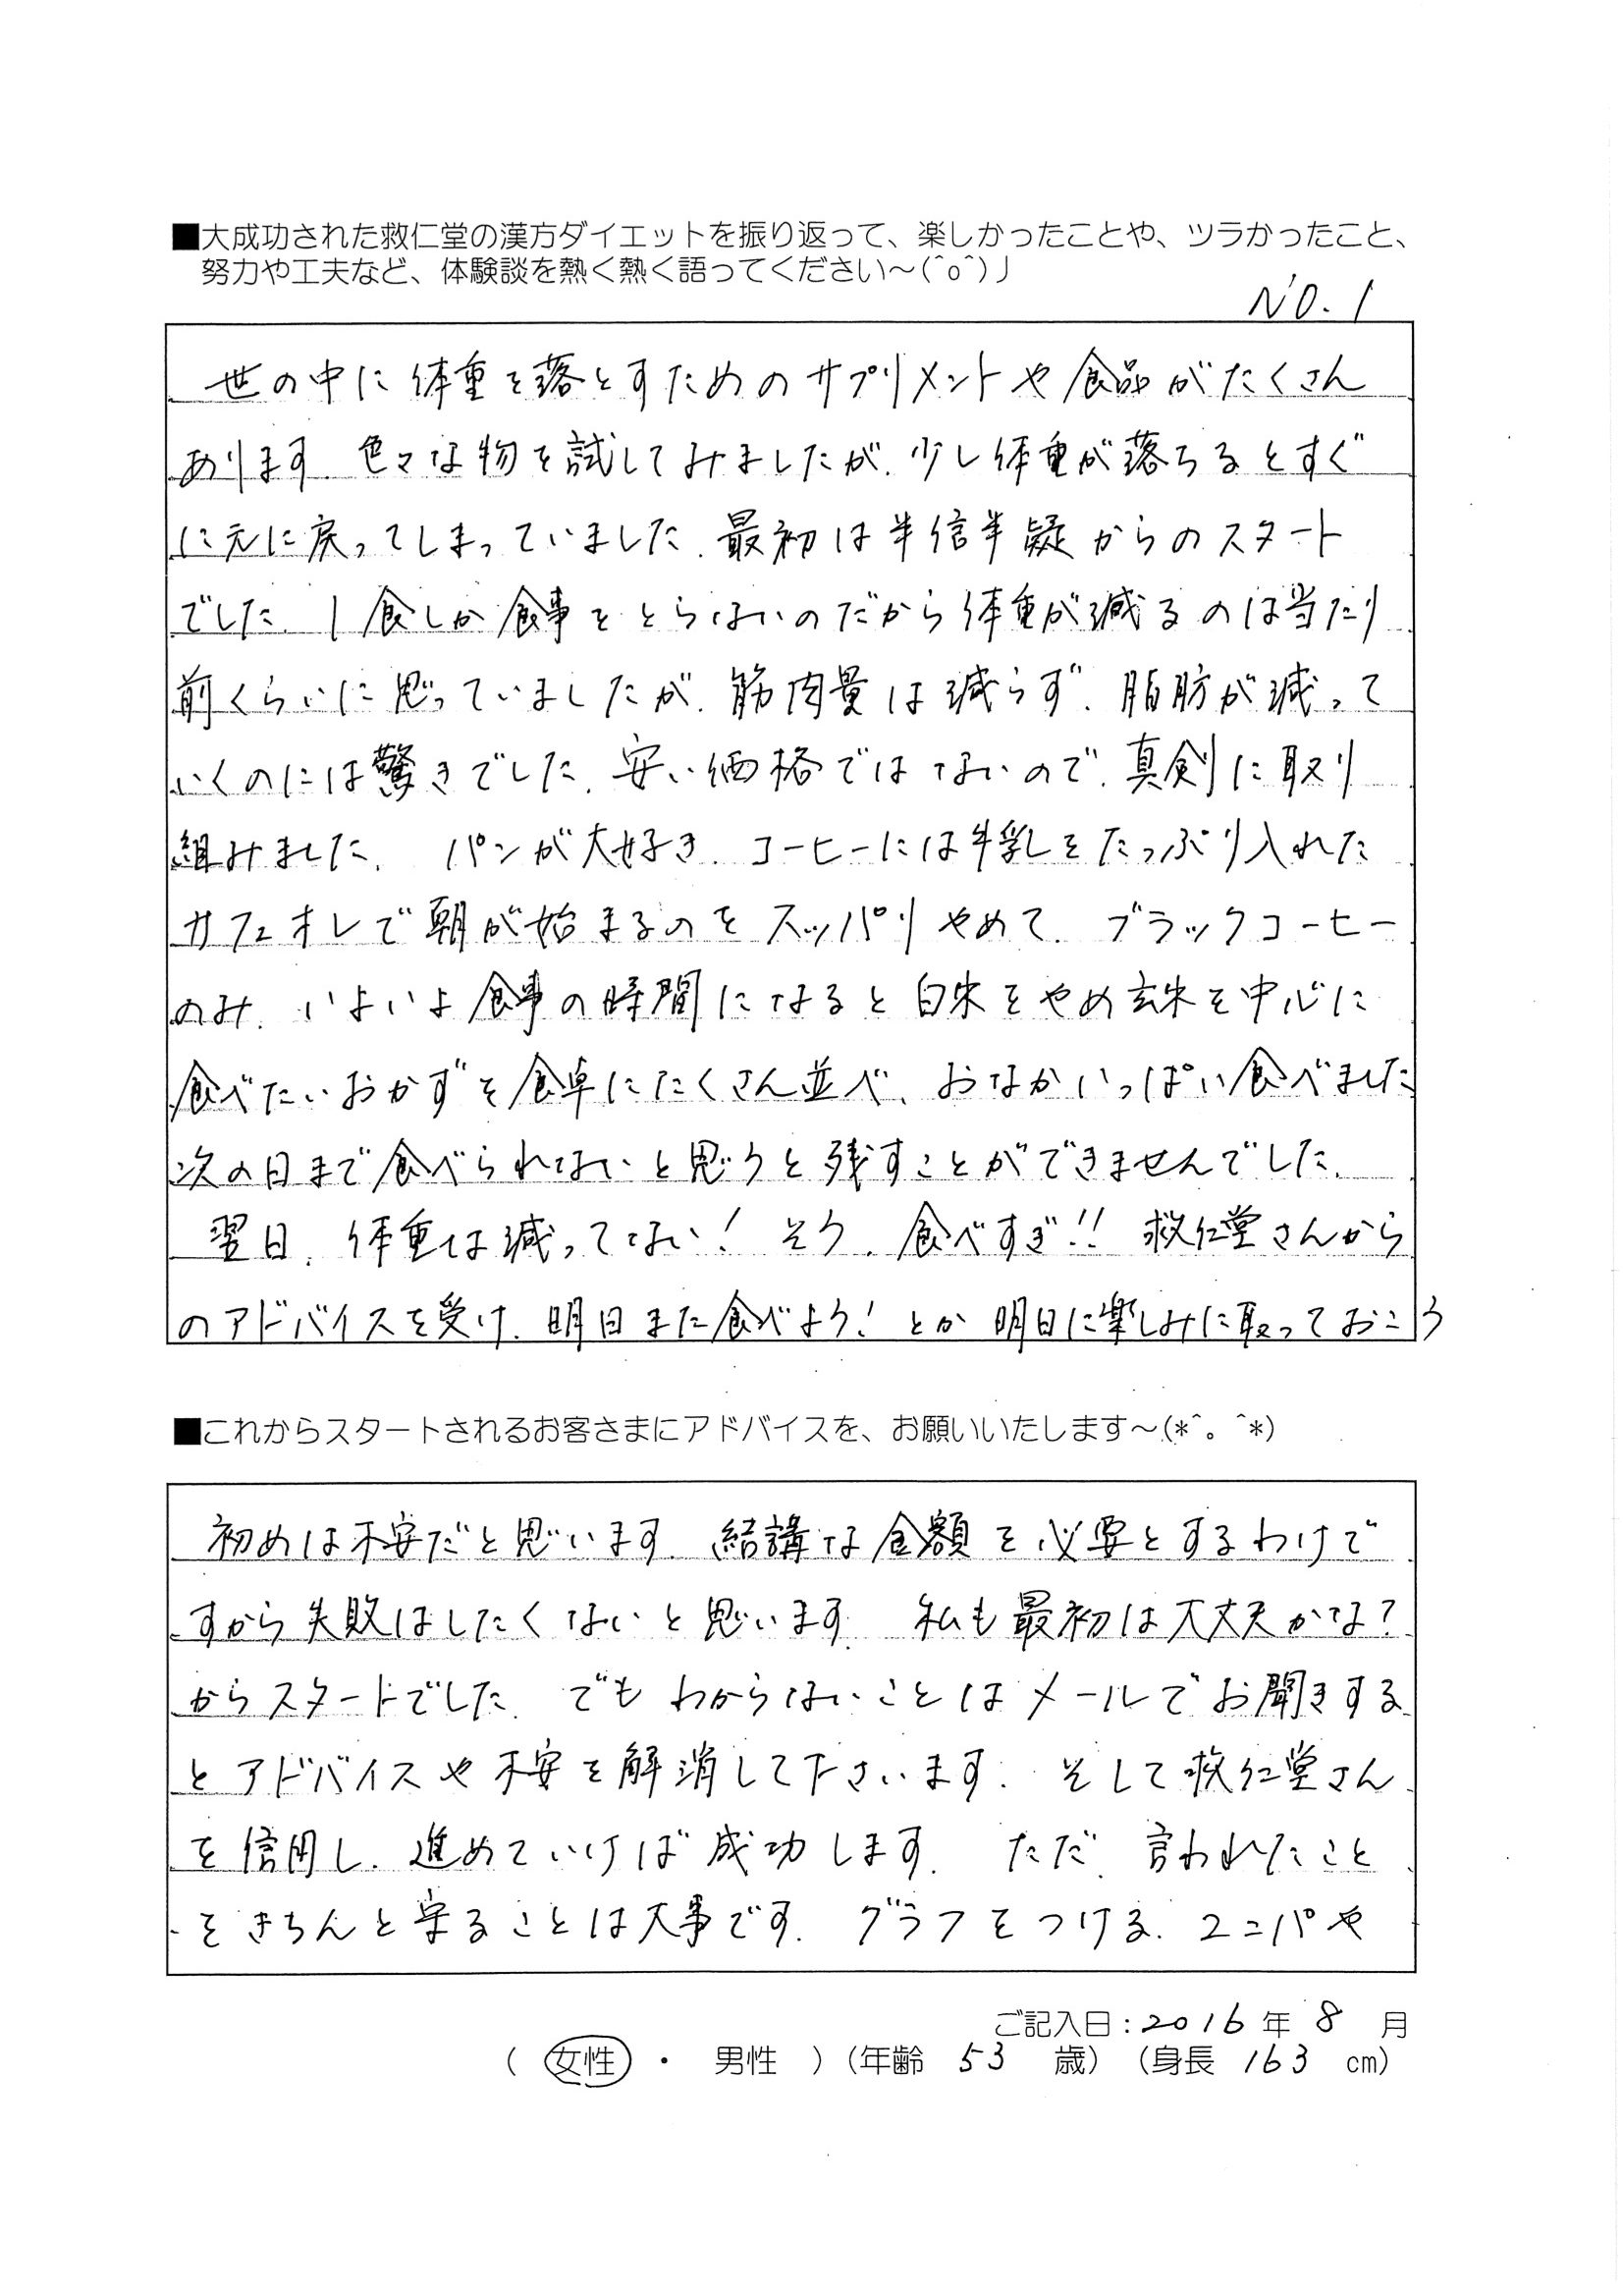 ■大成功された救仁堂の漢方ダイエットを振り返って、楽しかったことや、ツラかったこと、
努力や工夫など、体験談を熱く熱く語ってください～(^o^)丿
NO.1
世の中に体重を落とすためのサプリメントや食品がたくさん
あります。色々な物を試してみましたが、少し体重が落ちるとすぐ
に元に戻ってしまっていました。最初は半信半疑からのスタート
でした。1食しか食事をとらないのだから体重が減るのは当たり
前くらいに思っていましたが、筋肉量は減らず、脂肪が減って
いくのには驚きでした。安い価格ではないので、真剣に取り
組みました。 パンが大好き、コーヒーには牛乳をたっぷり入れた
カフェオレで朝が始まるのをスッパリやめて、ブラックコーヒー
のみ。いよいよ食事の時間になると白米をやめ玄米を中心に
食べたいおかずを食卓にたくさん並べ、おなかいっぱい食べました
次の日まで食べられないと思うと残すことができませんでした。
翌日、体重は減ってない！ そう、食べすぎ!! 救仁堂さんから
のアドバイスを受け、明日また食べよう！とか明日に楽しみに取っておこう
■これからスタートされるお客さまにアドバイスを、お願いいたします～(*^。^*)
初めは不安だと思います。結講な金額を必要とするわけで
すから失敗はしたくないと思います。 私も最初は大丈夫かな？
からスタートでした。でもわからないことはメールでお聞きする
とアドバイスや不安を解消して下さいます。そして救仁堂さん
を信用し、進めていけば成功します。 ただ、言われたこと
をきちんと守ることは大事です。グラフをつける。ユニパや
ご記入日：2016年 8 月
( 女性 ・ 男性 ) (年齢 53 歳) (身長 163 cm)